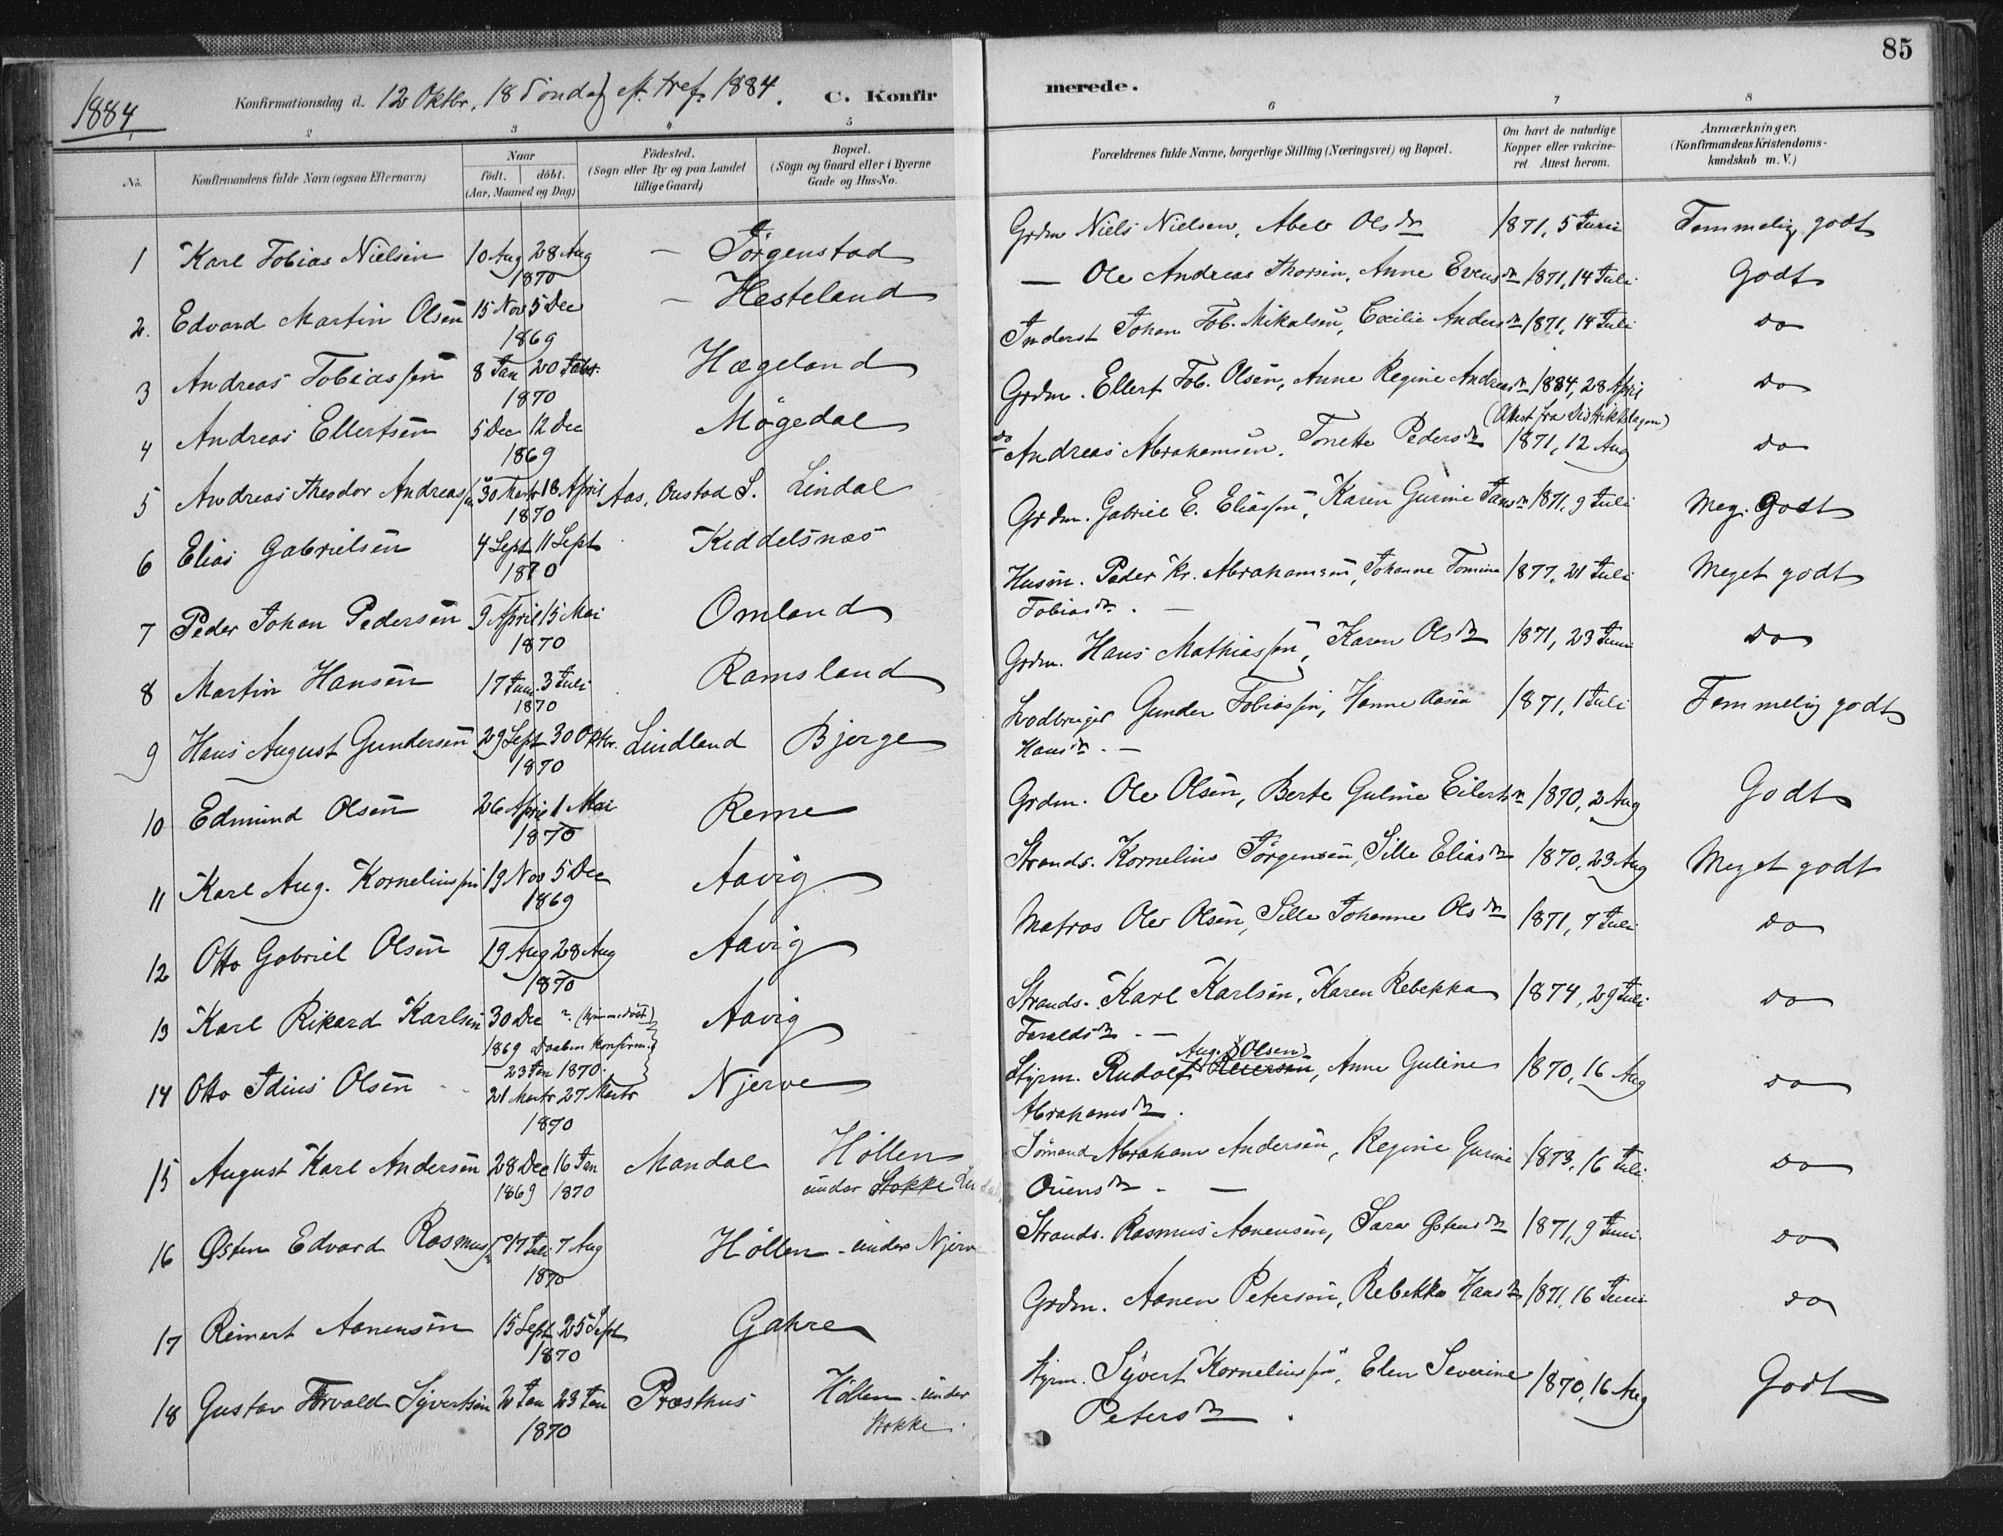 85
1884
Konfirmationsdag d. 12 Oktbr, 18 Söndag eft. Tref. 1884. C. Konfirmerede.
2 3 4 5 6 7 8
No. Konfirmandens fulde Navn (ogsaa Efternavn) Naar födt. döbt. (Aar, Maaned og Dag) Födested. (Sogn eller By og paa Landet tillige Gaard) Bopæl. (Sogn og Gaard eller i Byerne Gade og Hus-No. Forældrenes fulde Navne, borgerlige Stilling (Næringsvei) og Bopæl. Om havt de naturlige Kopper eller vakcineret Attest herom. Anmærkninger. (Konfirmandens Kristendomskundskab m. V.)
1 Karl Tobias Nielsen 10 Aug 28 Aug 1870 — Jörgenstad Grdm Niels Nielsen, Abel Olsdr 1871, 5 Juni Temmelig godt
2. Edvard Martin Olsen 15 Nov 5 Dec 1869 — Hesteland — Ole Andreas Thorsen, Anne Evensdr 1871, 14 Juli Godt
3 Andreas Tobiassen 8 Jan 20 Febr. 1870 Hægeland Inderst Johan Tob. Mikalsen, Cecilie Andersdr 1871, 14 Juli do
4 Andreas Ellertsen 5 Dec 12 Dec 1869 Mögedal Grdm. Ellert Tob. Olsen, Anne Regine Andreasdr 1884, 28 April (Attest fra Distriktslægen) do
5 Andreas Theodor Andreassen 30 Marts 18 April 1870 Aas, Oustad S. Lindal do Andreas Abrahamsen, Tonette Pedersdr 1871, 12 Aug do
6 Elias Gabrielsen 4 Sept 11 Sept 1870 Kiddelsnæs Grdm. Gabriel E. Eliassen, Karen Gurine Jansdr 1871, 9 Juli Meg. Godt
7 Peder Johan Pedersen 9 April 15 Mai 1870 Omland Husm. Peder Kr. Abrahamsen, Johanne Tomine Tobiasdr. — 1877, 21 Juli Meget godt
8 Martin Hansen 17 Juni 3 Juli 1870 Ramsland Grdm. Hans Mathiassen, Karen Olsdr 1871, 23 Juni do
9 Hans August Gundersen 29 Sept 30 Oktbr. 1870 Lindland Bjerge Lodbruger Gunder Tobiassen, Hanne Aasen Hansdr. — 1871, 1 Juli Temmelig godt
10 Edmund Olsen 26 April 1 Mai 1870 Reme Grdm. Ole Olsen, Berte Guline Eilertsdr 1870, 2 Aug Godt
11 Karl Aug. Korneliussen 19 Nov 5 Dec 1869 Aavig Strands. Kornelius Jörgensen, Sille Eliasdr 1870, 23 Aug Meget godt
12 Otto Gabriel Olsen 19 Aug 28 Aug 1870 Aavig Matros Ole Olsen, Sille Johanne Olsdr 1871, 7 Juli do
13 Karl Rikard Karlsen 30 Dec 1869 ?. (hjemmedöbt) Daaben konfirm. 23 Jan 1870. Aavig Strands. Karl Karlsen, Karen Rebekka Taraldsdr. — 1874, 29 Juli do
14 Otto Idius Olsen 21 Marts 27 Marts 1870 Njerve Styrm. Rudolf Aug. Olsen, Anne Guline Abrahamsdr. 1870, 16 Aug do
15 August Karl Andersen 28 Dec 1869 16 Jan 1870 Mandal Höllen under Stokke Sömand Abraham Andersen, Regine Gurine Ouensdr. — 1873, 16 Juli do
16 Østen Edvard Rasmussen 17 Juli 7 Aug 1870 Höllen under Njerve Strands. Rasmus Aanensen, Sara Østensdr 1871, 9 Juni do
17 Reinert Aanensen 15 Sept 25 Sept 1870 Gahre Grdm. Aanen Petersen, Rebekka Hansdr 1871, 16 Juni do
18 Gustav Torvald Syvertsen 2 Jan 23 Jan 1870 Præsthus Höllen under Stokke. Styrm. Syvert Korneliussen, Elen Severine Petersdr. 1870, 16 Aug Godt